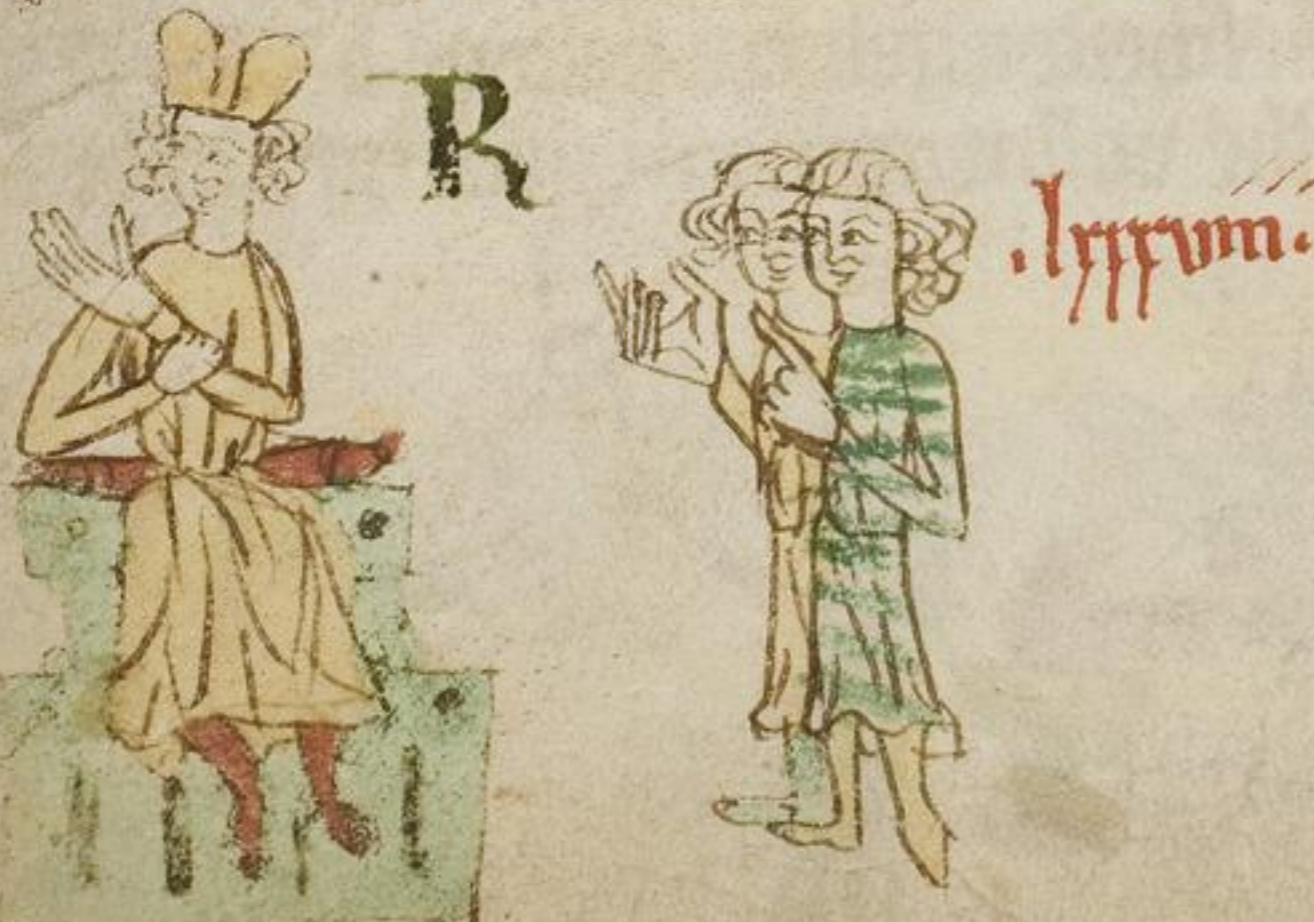 R
.lxxxviii.